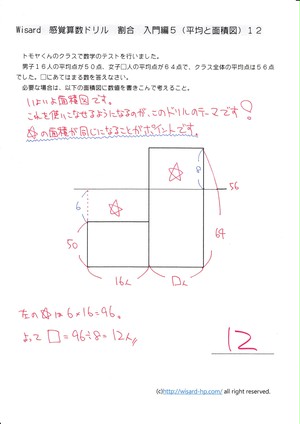 Wisard 感覚算数ドリル 割合 入門編5(平均と面積図)12
トモヤくんのクラスで数学のテストを行いました。
男子16人の平均点が50点、女子□人の平均点が64点で、クラス全体の平均点は56点
でした。□にあてはまる数を答えなさい。
必要な場合は、以下の面積図に数値を書きこんで考えること。
いよいよ面積図です。
これを使いこなせるようになるのが、このドリルのテーマです!
☆の面積が同じになることがポイントです。
8
56
6
☆
☆
50
64
16人
□人
左の☆は6×16=96。
よって□=96÷8=12人
12
(c)http://wisard-hp.com/ all right reserved.